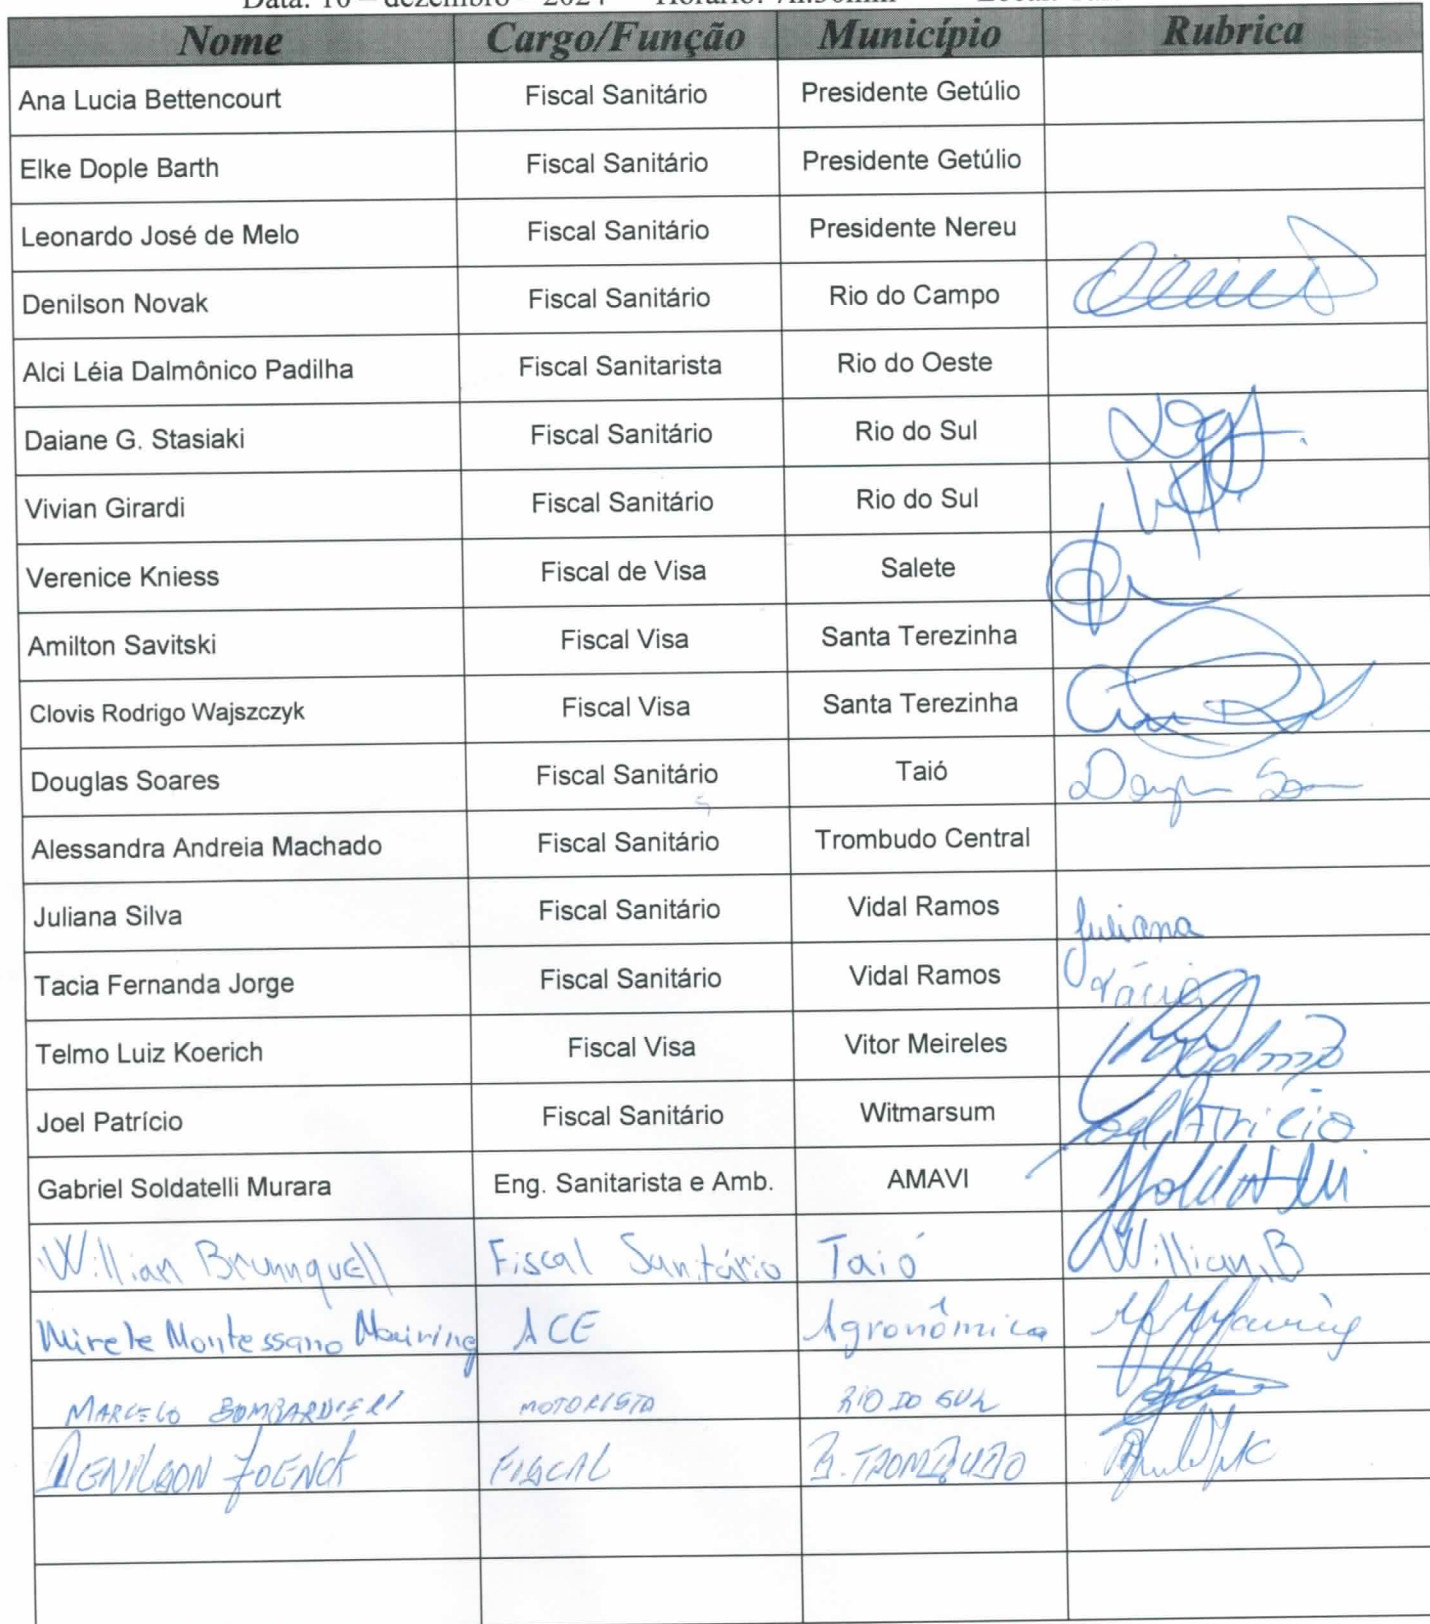 Data: 10 – dezembro – 2024 Horário: 7h:30min
Nome Cargo/Função Município Rubrica
Ana Lucia Bettencourt Fiscal Sanitário Presidente Getúlio
Elke Dople Barth Fiscal Sanitário Presidente Getúlio
Leonardo José de Melo Fiscal Sanitário Presidente Nereu
Denilson Novak Fiscal Sanitário Rio do Campo
Alci Léia Dalmônico Padilha Fiscal Sanitarista Rio do Oeste
Daiane G. Stasiaki Fiscal Sanitário Rio do Sul
Vivian Girardi Fiscal Sanitário Rio do Sul
Verenice Kniess Fiscal de Visa Salete
Amilton Savitski Fiscal Visa Santa Terezinha
Clovis Rodrigo Wajszczyk Fiscal Visa Santa Terezinha
Douglas Soares Fiscal Sanitário Taió
Alessandra Andreia Machado Fiscal Sanitário Trombudo Central
Juliana Silva Fiscal Sanitário Vidal Ramos Juliana
Tacia Fernanda Jorge Fiscal Sanitário Vidal Ramos Tácia
Telmo Luiz Koerich Fiscal Visa Vitor Meireles
Joel Patrício Fiscal Sanitário Witmarsum Joel Patricio
Gabriel Soldatelli Murara Eng. Sanitarista e Amb. AMAVI Soldatelli
Willian Brunnquell Fiscal Sanitário Taió Willian B
Mirele Montessano Mairing ACE Agronômica
MARCELO BOMBARDIERI MOTORISTA RIO DO SUL
DENILSON FOENCK FISCAL B. TROMBUDO